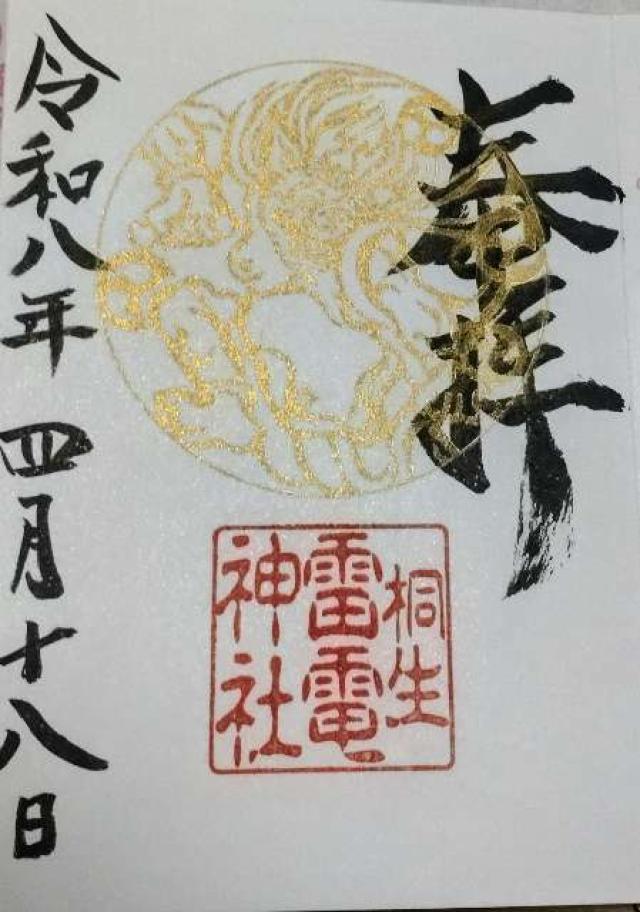 奉拝
桐生
雷電
神社
令和八年四月十八日